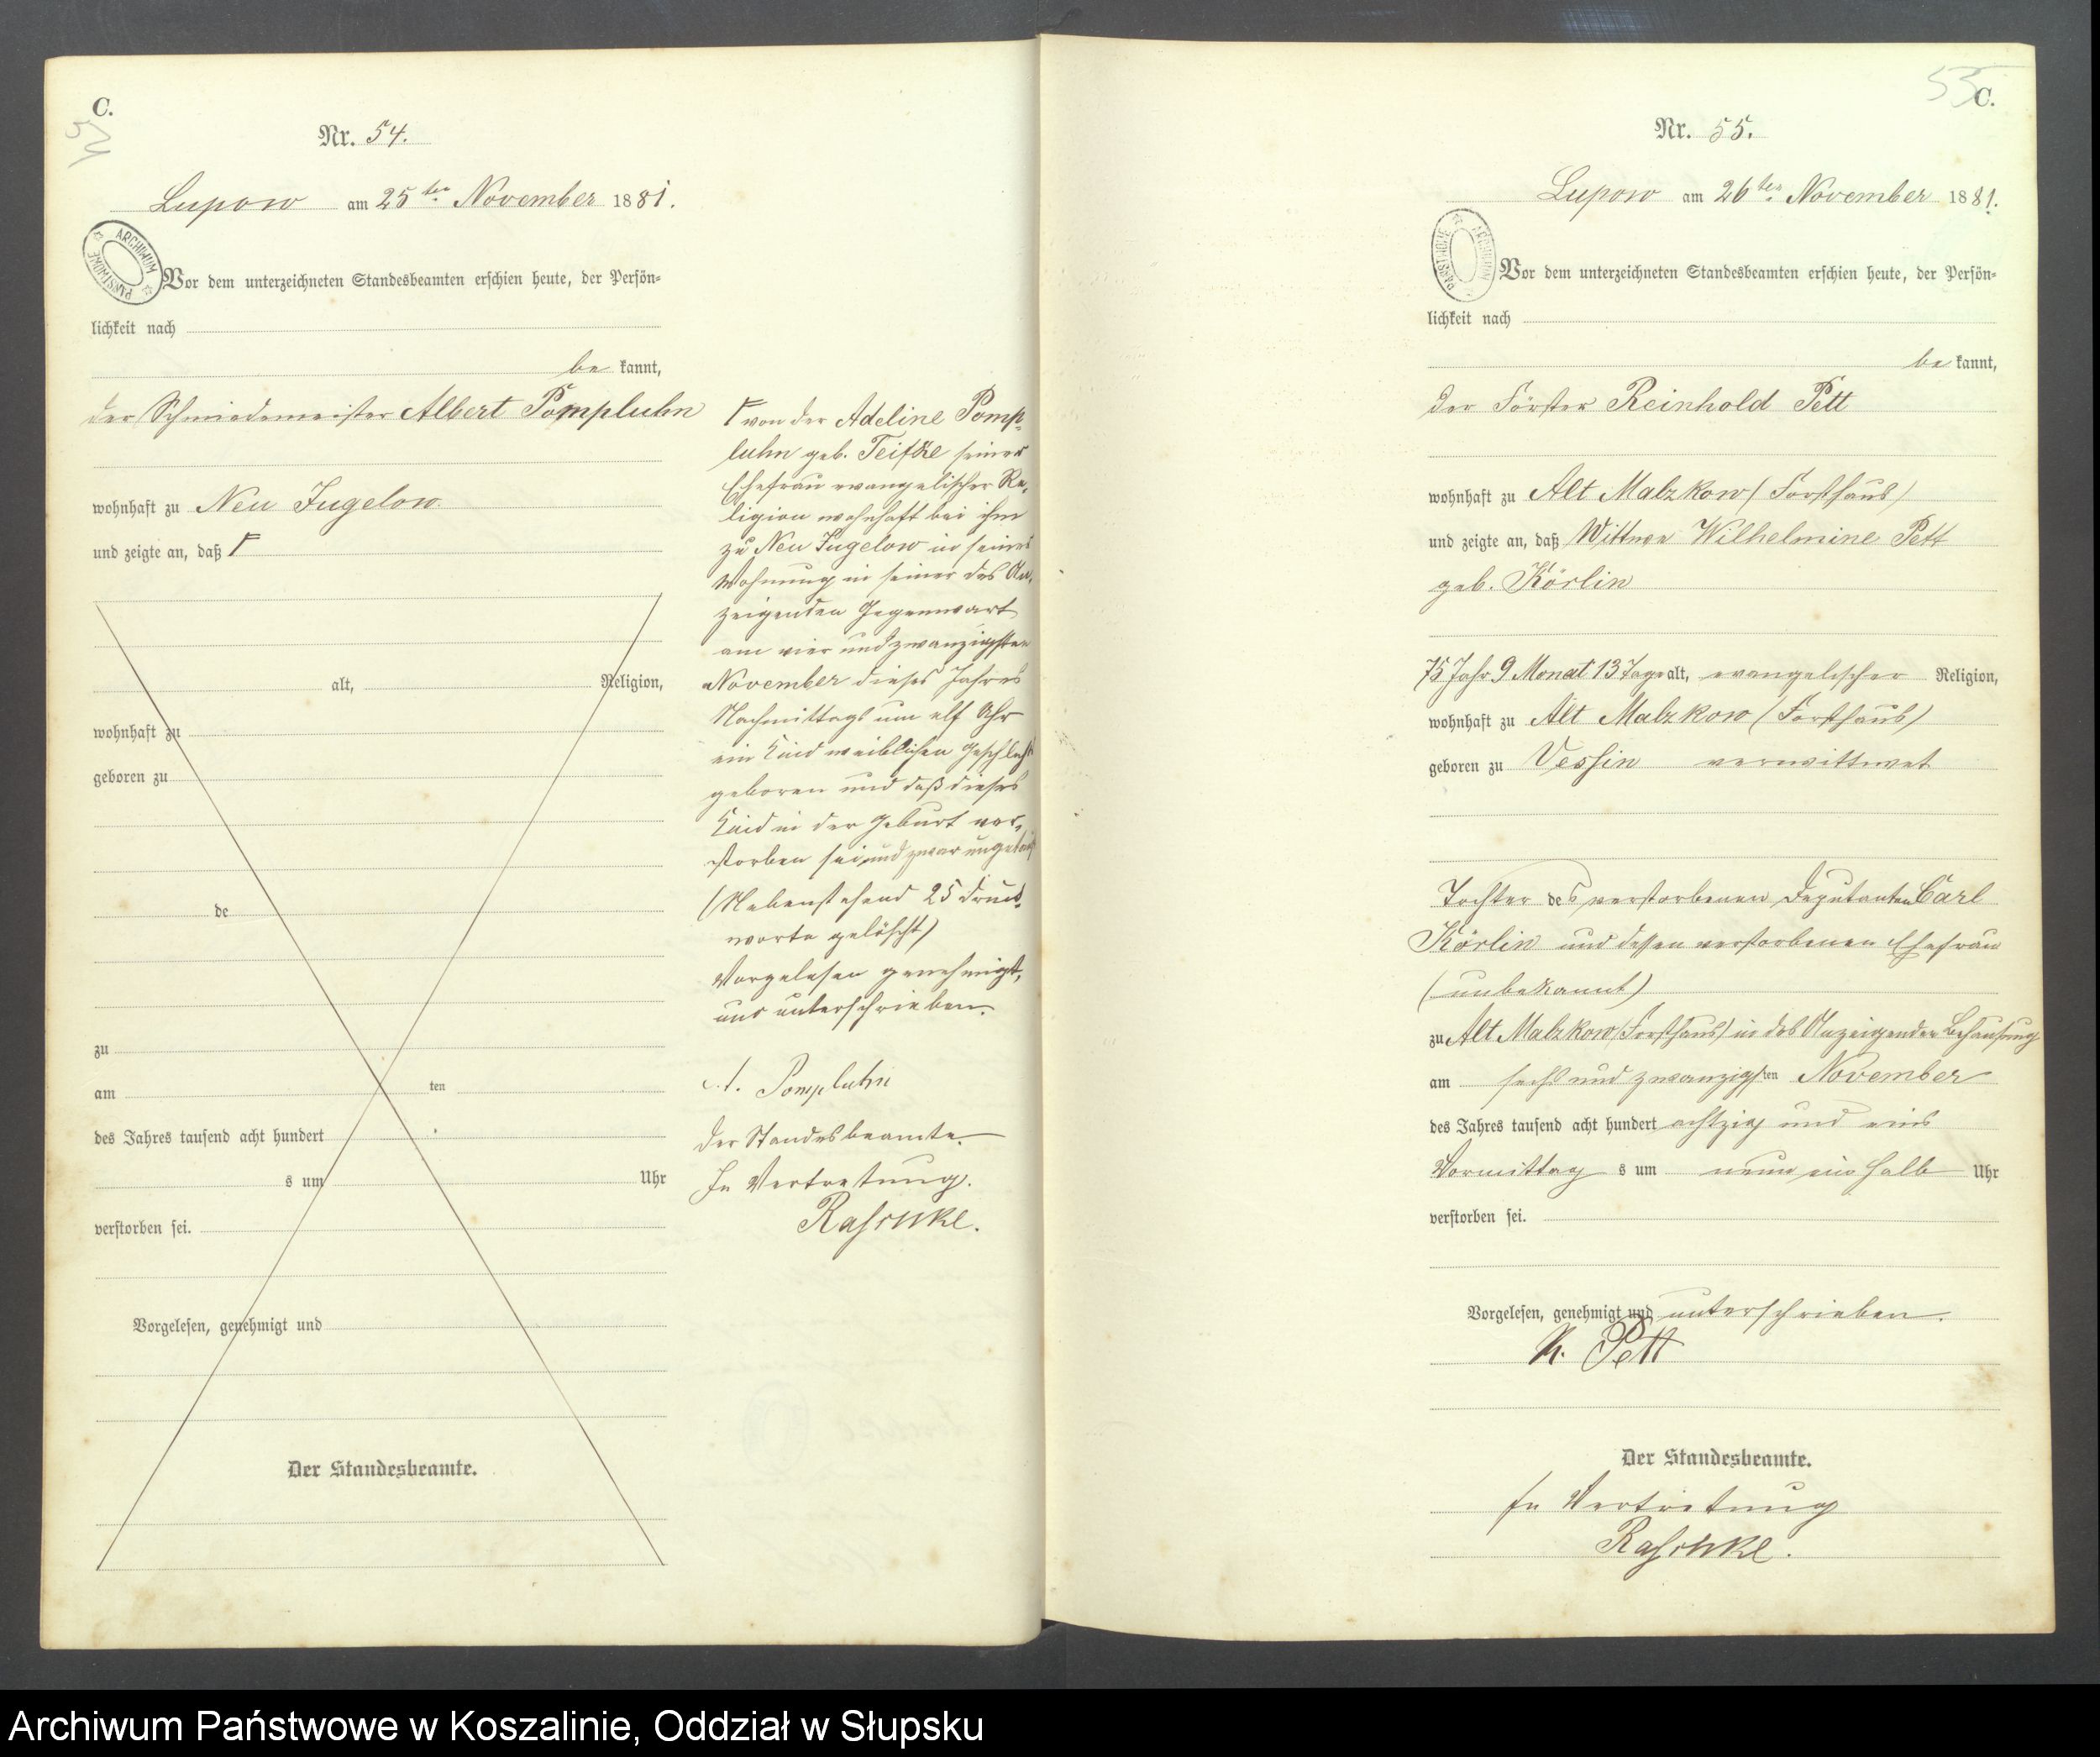 C.
54
Nr. 54.
Lupow am 25ten November 1881.
ARCHIWUM PAŃSTWOWE
Vor dem unterzeichneten Standesbeamten erschien heute, der Persön-
lichkeit nach
be kannt,
der Schmiedemeister Albert Pompluhn
wohnhaft zu Neu Jugelow
und zeigte an, daß Γ
alt, Religion,
wohnhaft zu
geboren zu
de
zu
am ten
des Jahres tausend acht hundert
s um Uhr
verstorben sei.
Vorgelesen, genehmigt und
Der Standesbeamte.
Γ von der Adeline Pomp-
luhn geb. Teifke seiner
Ehefrau evangelischer Re-
ligion wohnhaft bei ihm
zu Neu Jugelow in seiner
Wohnung in seiner des An-
zeigenden Gegenwart
am vier und zwanzigsten
November dieses Jahres
Nachmittags um elf Uhr
ein Kind weiblichen Geschlechts
geboren und daß dieses
Kind in der Geburt ver-
storben sei und zwar ungetauft
(Nebenstehend 25 Druck-
worte gelöscht)
Vorgelesen genehmigt,
und unterschrieben.
A. Pompluhn
Der Standesbeamte.
In Vertretung.
Raschke.
55
C.
Nr. 55.
Lupow am 26ten November 1881.
ARCHIWUM PAŃSTWOWE
Vor dem unterzeichneten Standesbeamten erschien heute, der Persön-
lichkeit nach
be kannt,
der Förster Reinhold Pett
wohnhaft zu Alt Malzkow (Forsthaus)
und zeigte an, daß Wittwe Wilhelmine Pett
geb. Körlin
75 Jahr 9 Monat 13 Tage alt, evangelischer Religion,
wohnhaft zu Alt Malzkow (Forsthaus)
geboren zu Vessin verwittwet
Tochter des verstorbenen Deputanten Carl
Körlin und dessen verstorbenen Ehefrau
(unbekannt)
zu Alt Malzkow (Forsthaus) in des Anzeigenden Behausung
am sechs und zwanzigsten November
des Jahres tausend acht hundert achtzig und eins
Vormittag s um neun ein halb Uhr
verstorben sei.
Vorgelesen, genehmigt und unterschrieben.
R. Pett
Der Standesbeamte.
In Vertretung
Raschke.
Archiwum Państwowe w Koszalinie, Oddział w Słupsku